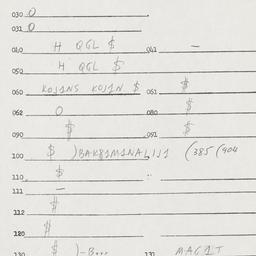 030 0
031 0
040 H QGL $ 041 —
050 H QGL $
060 KOJ1NS KOJ1N $ 061 $
062 0 080 $
090 $ 091 $
100 $ )BAK81M1NALIJ1 (385 (404
110 $
111 —
112 #
120 #
130 $ )-B... 131 MAG1T